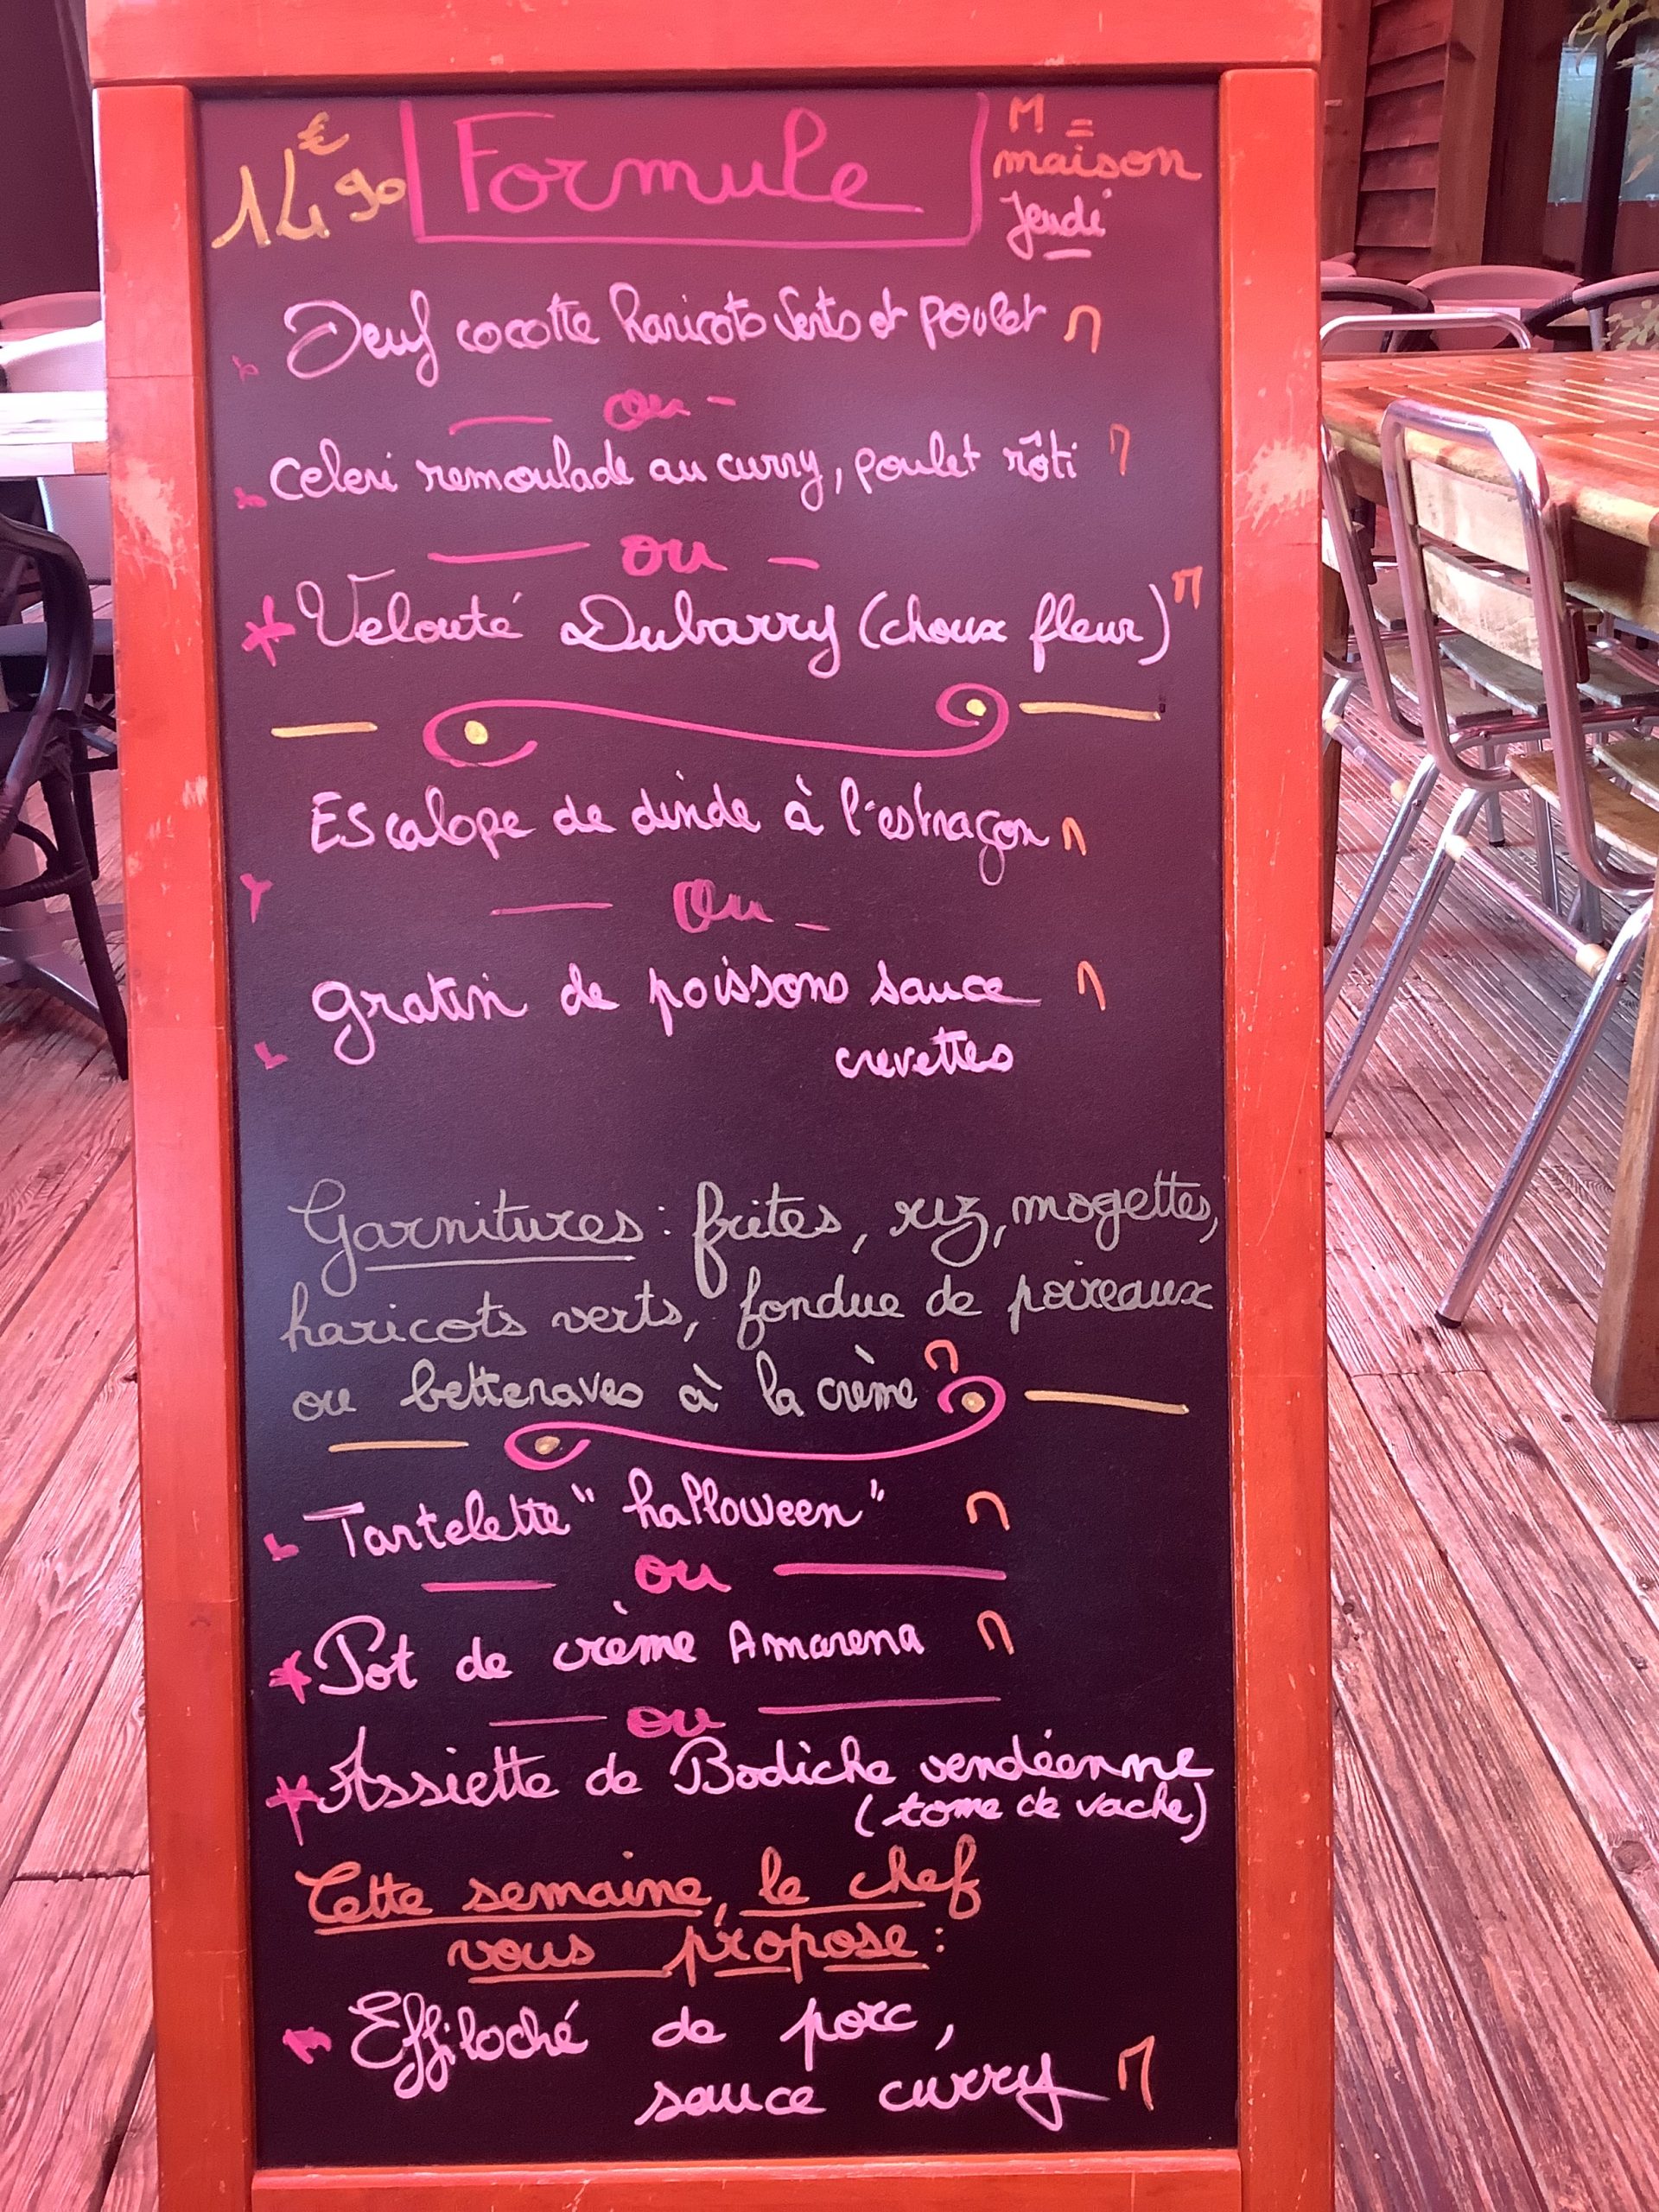 14€90 Formule M = maison
Jeudi
Oeuf cocotte haricots verts et poulet M
ou
Celeri remoulade au curry, poulet rôti M
ou
Velouté Dubarry (choux fleur) M
Escalope de dinde à l'estragon M
ou
gratin de poissons sauce M
crevettes
Garnitures : frites, riz, mogettes,
haricots verts, fondue de poireaux
ou betteraves à la crème M
Tartelette "halloween" M
ou
Pot de crème Amarena M
ou
Assiette de Bodiche vendéenne
(tome de vache)
Cette semaine, le chef
vous propose :
Effiloché de porc,
sauce curry M